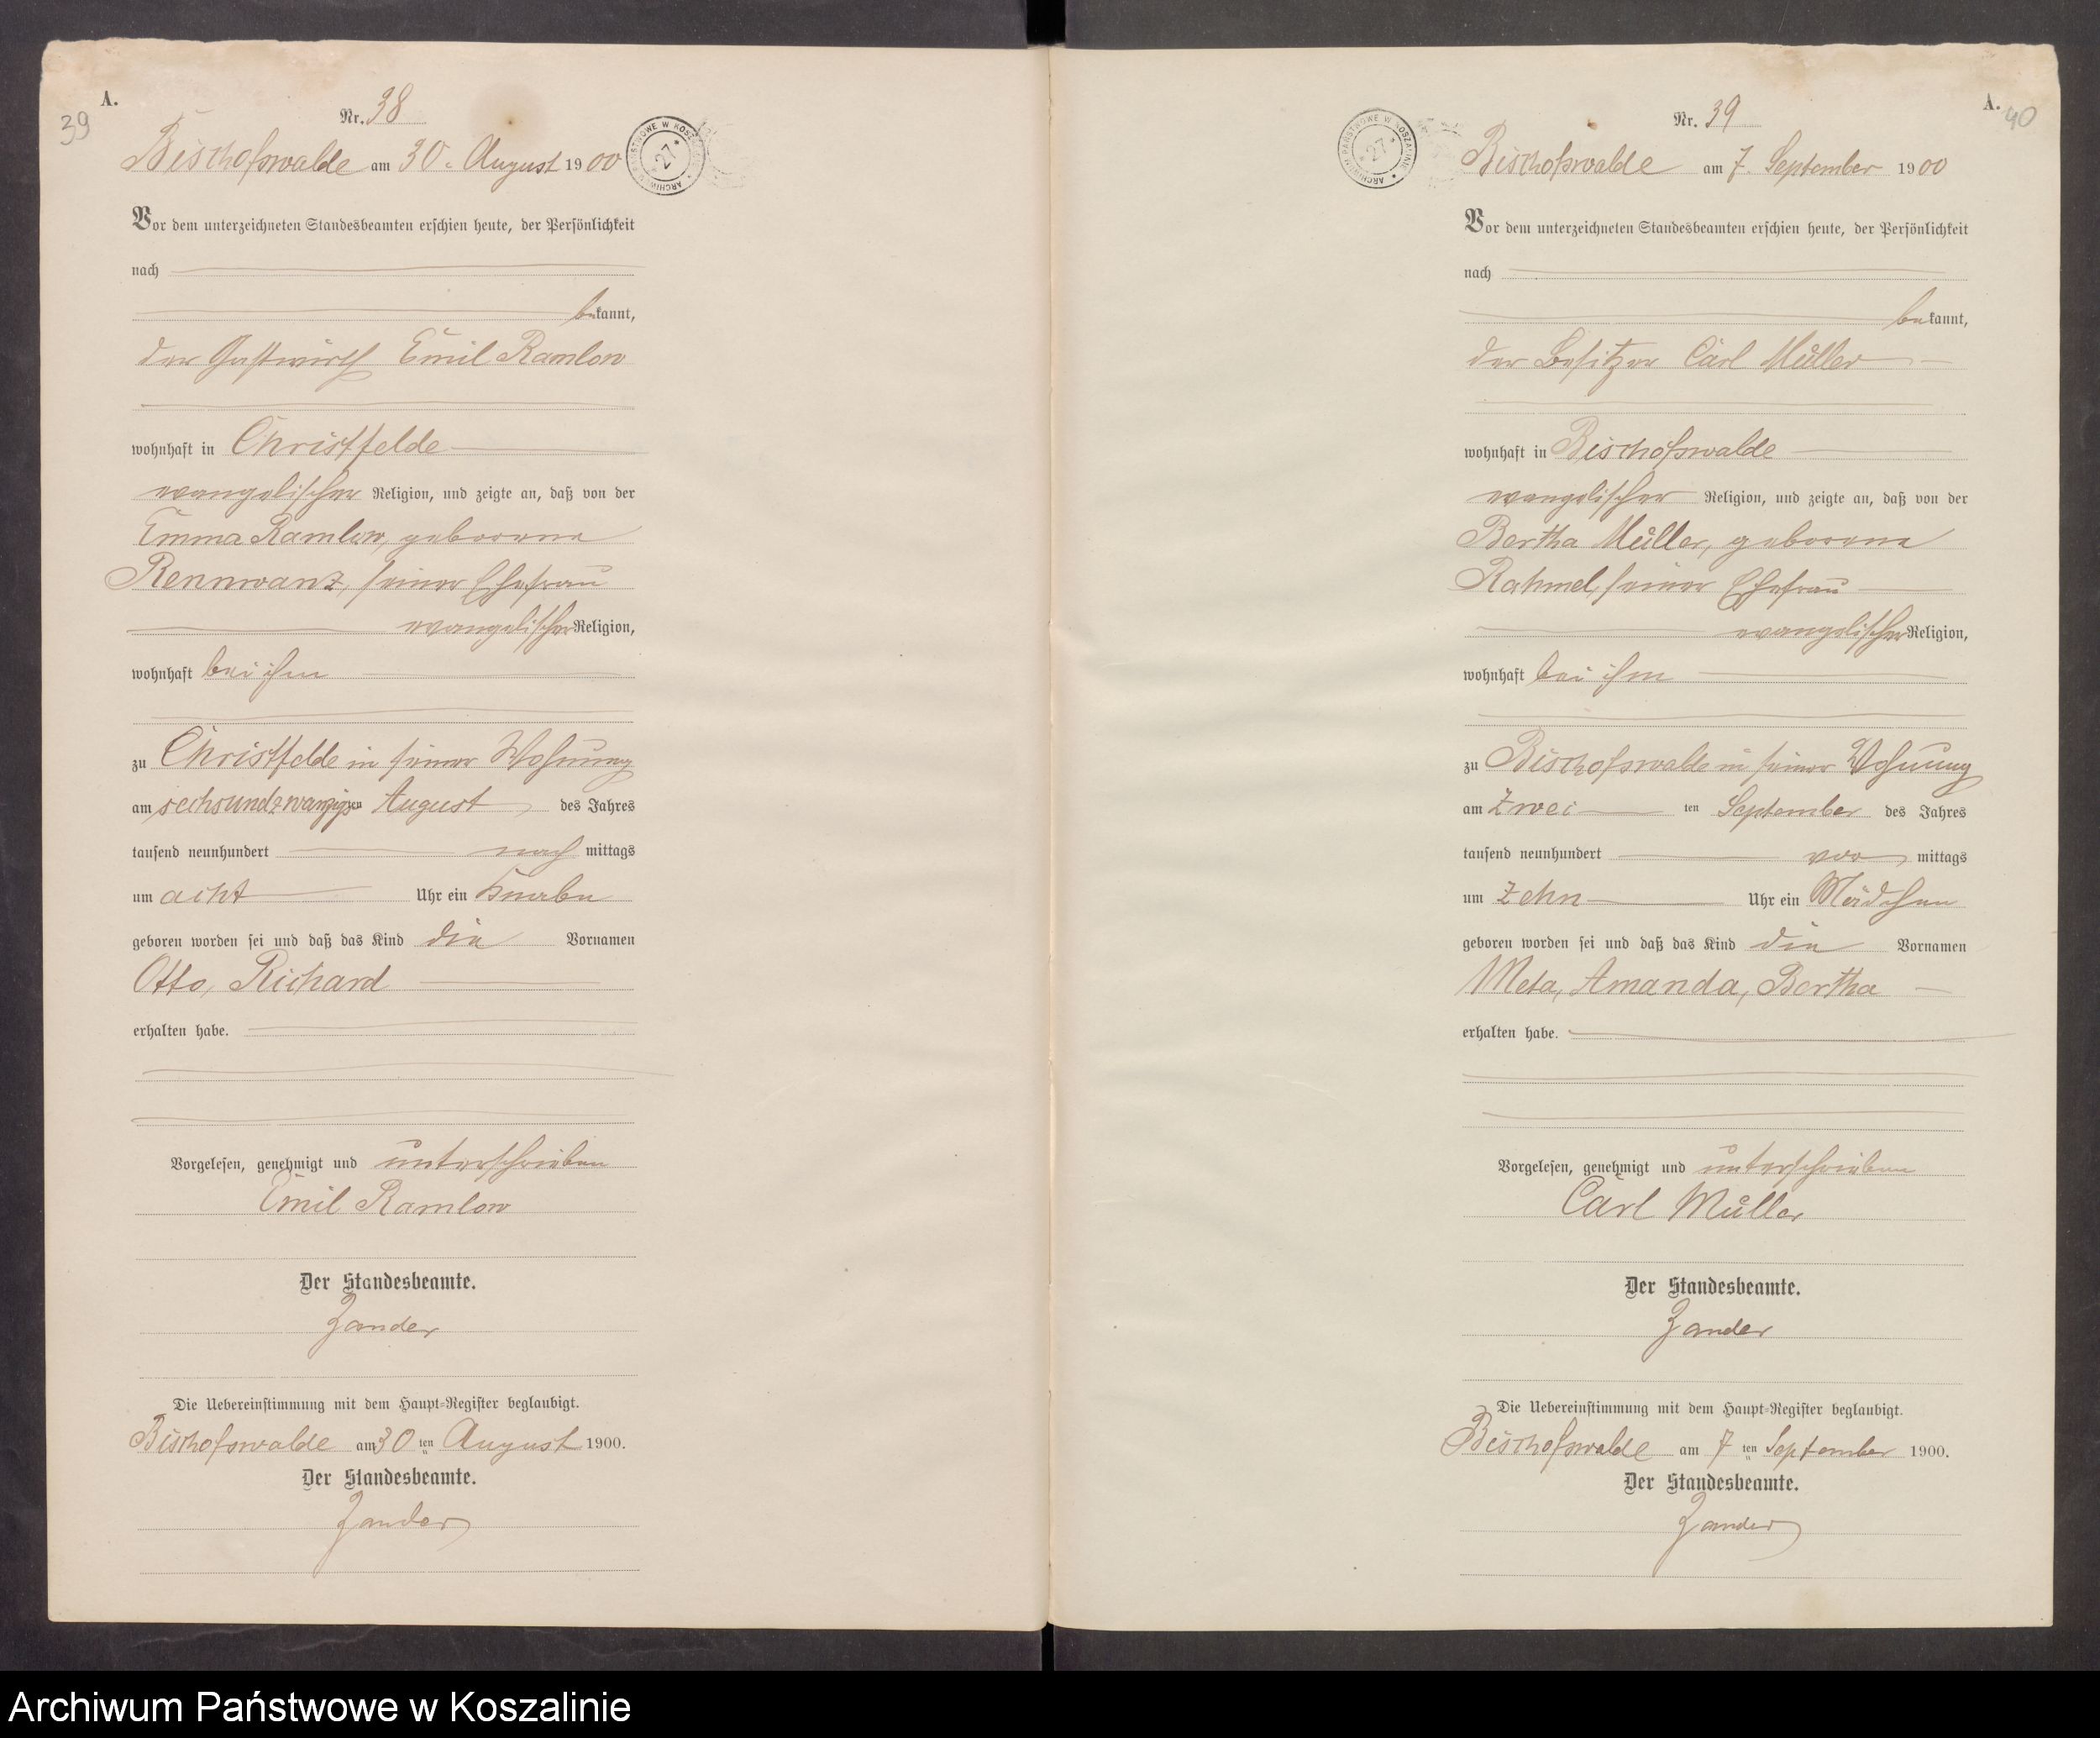 A.
39
Nr. 38
Bischofswalde am 30. August 1900
Vor dem unterzeichneten Standesbeamten erschien heute, der Persönlichkeit
nach
bekannt,
der Gastwirth Emil Ramlow
wohnhaft in Christfelde
evangelischer Religion, und zeigte an, daß von der
Emma Ramlow, geborene
Rennwanz, seiner Ehefrau
evangelischer Religion,
wohnhaft bei ihm
zu Christfelde in seiner Wohnung
am sechsundzwanzigsten August des Jahres
tausend neunhundert nach mittags
um acht Uhr ein Knabe
geboren worden sei und daß das Kind die Vornamen
Otto, Richard
erhalten habe.
Vorgelesen, genehmigt und unterschrieben
Emil Ramlow
Der Standesbeamte.
Zander
Die Uebereinstimmung mit dem Haupt-Register beglaubigt.
Bischofswalde am 30 ten August 1900.
Der Standesbeamte.
Zander
ARCHIWUM PAŃSTWOWE W KOSZALINIE
27
A.
40
Nr. 39
Bischofswalde am 7. September 1900
Vor dem unterzeichneten Standesbeamten erschien heute, der Persönlichkeit
nach
bekannt,
der Besitzer Carl Müller
wohnhaft in Bischofswalde
evangelischer Religion, und zeigte an, daß von der
Bertha Müller, geborene
Rahmel, seiner Ehefrau
evangelischer Religion,
wohnhaft bei ihm
zu Bischofswalde in seiner Wohnung
am zwei ten September des Jahres
tausend neunhundert vor mittags
um zehn Uhr ein Mädchen
geboren worden sei und daß das Kind die Vornamen
Meta, Amanda, Bertha
erhalten habe.
Vorgelesen, genehmigt und unterschrieben
Carl Müller
Der Standesbeamte.
Zander
Die Uebereinstimmung mit dem Haupt-Register beglaubigt.
Bischofswalde am 7 ten September 1900.
Der Standesbeamte.
Zander
ARCHIWUM PAŃSTWOWE W KOSZALINIE
27
Archiwum Państwowe w Koszalinie